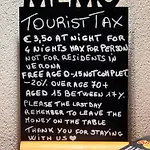 MEMO
TOURIST TAX
€ 3,50 AT NIGHT FOR
4 NIGHTS MAX FOR PERSON
NOT FOR RESIDENTS IN
VERONA
FREE AGE 0-15 NOT COMPLET.
-20% OVER AGE 70+
AGED 15 BETWEEN 17 Y.
PLEASE THE LAST DAY
REMEMBER TO LEAVE THE
MONEY ON THE TABLE
THANK YOU FOR STAYING
WITH US